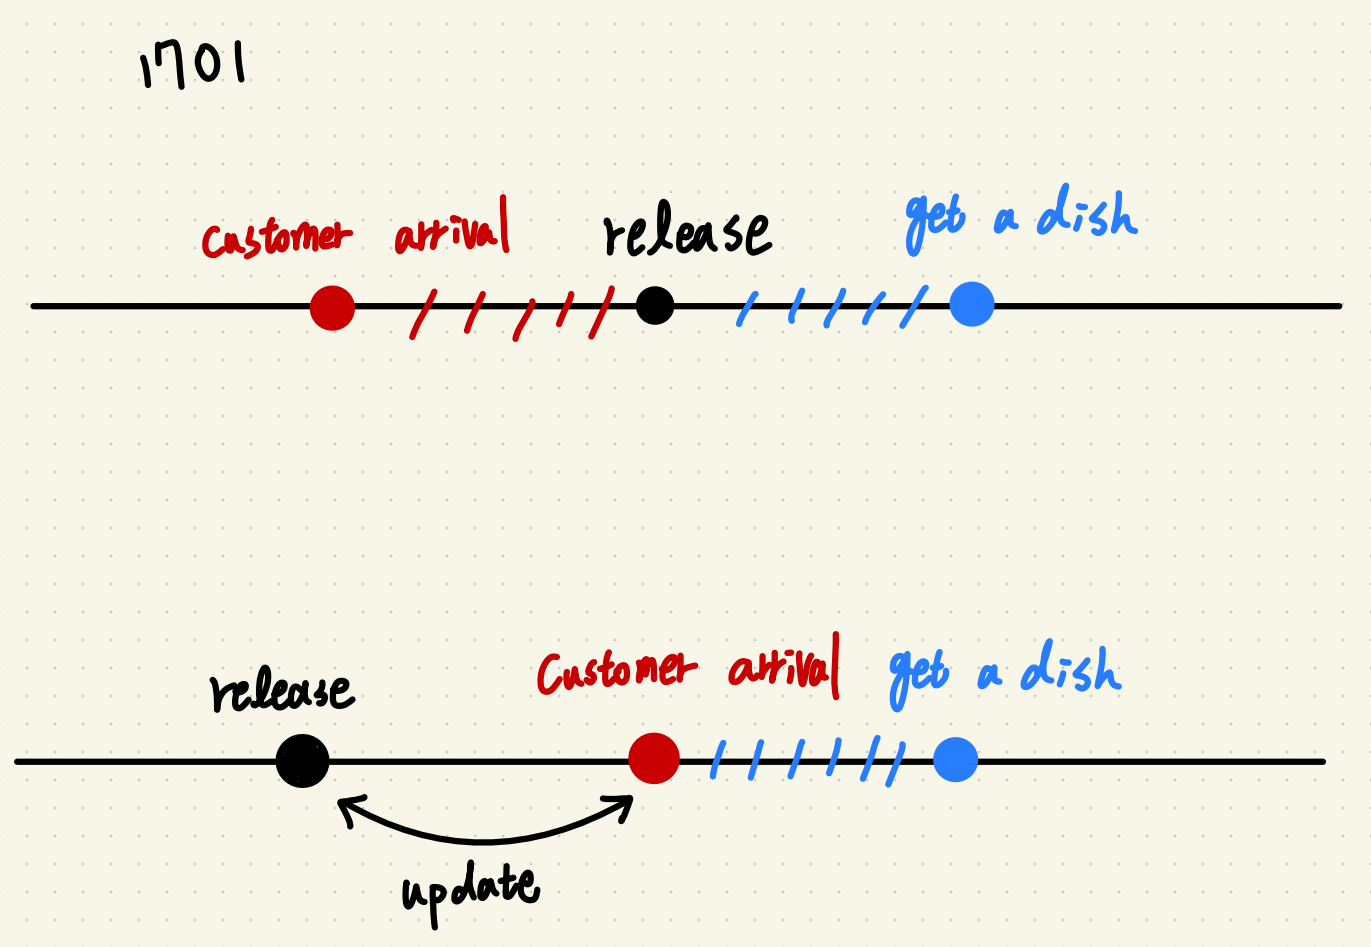 1701
customer arrival release get a dish
release Customer arrival get a dish
update